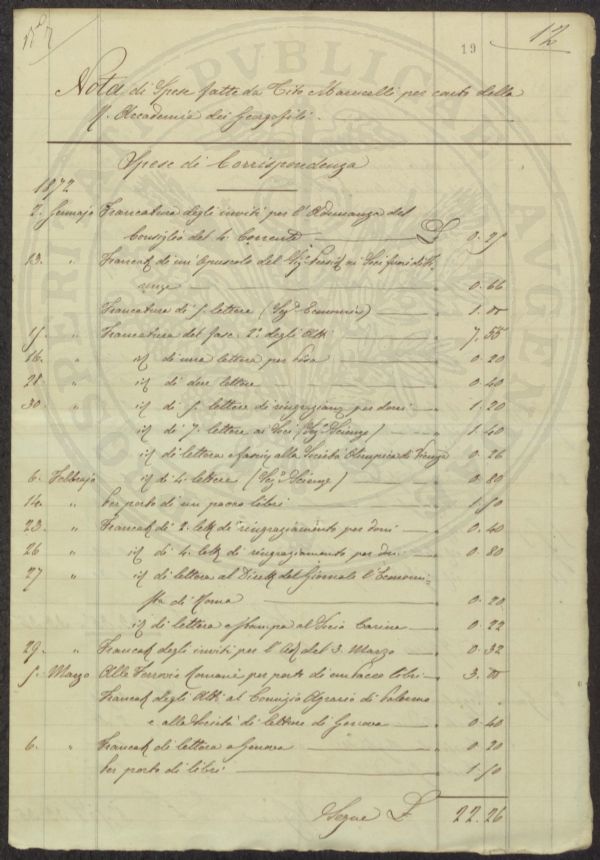 12
19
Nota di Spese fatte da Tito Marucelli per conto della
R. Accademia dei Georgofili.
Spese di Corrispondenza
1872
2. Gennajo Francatura degli inviti per l'Adunanza del
Consiglio del 4. Corrente £ 0. 25
13. " Francat. di un Opuscolo del ai Soci fuori di Fi-
renze " 0. 66
Francatura di 5. lettere (Seg. Economia) " 1. 00
15. " Francatura del fasc. 2° degli Atti " 7. 55
16. " id di una lettera per " 0. 20
28. " id di due lettere " 0. 40
30. " id di 5. lettere di ringraziam per doni " 1. 20
" id di 7. lettere ai Soci (Seg. Scienze) " 1. 40
id di lettera e alla Società Olimpica di 0. 26
6. Febbrajo id di 4. lettere (Seg. Scienze) " 0. 80
14. " Per porto di un pacco libri " 1. 50
23. " Francat di 2. lett di ringraziamento per doni " 0. 40
26 " id di 4. lett. di ringraziamento per doni " 0. 80
27 " id di lettera al Dirett. del Giornale l'Economi-
sta di Roma " 0. 20
id di lettera e stampa al Socio " 0. 22
29. " Francat degli inviti per l' Ad. del 3. Marzo " 0. 32
5. Marzo Alle Ferrovie Romane per porto di un pacco libri " 3. 00
Francat degli Atti al Comizio Agrario di Palermo
e alla Società di letture di Genova " 0. 40
6. " Francat di lettera a Genova " 0. 20
Per porto di libri " 1. 50
Segue £ 22. 26